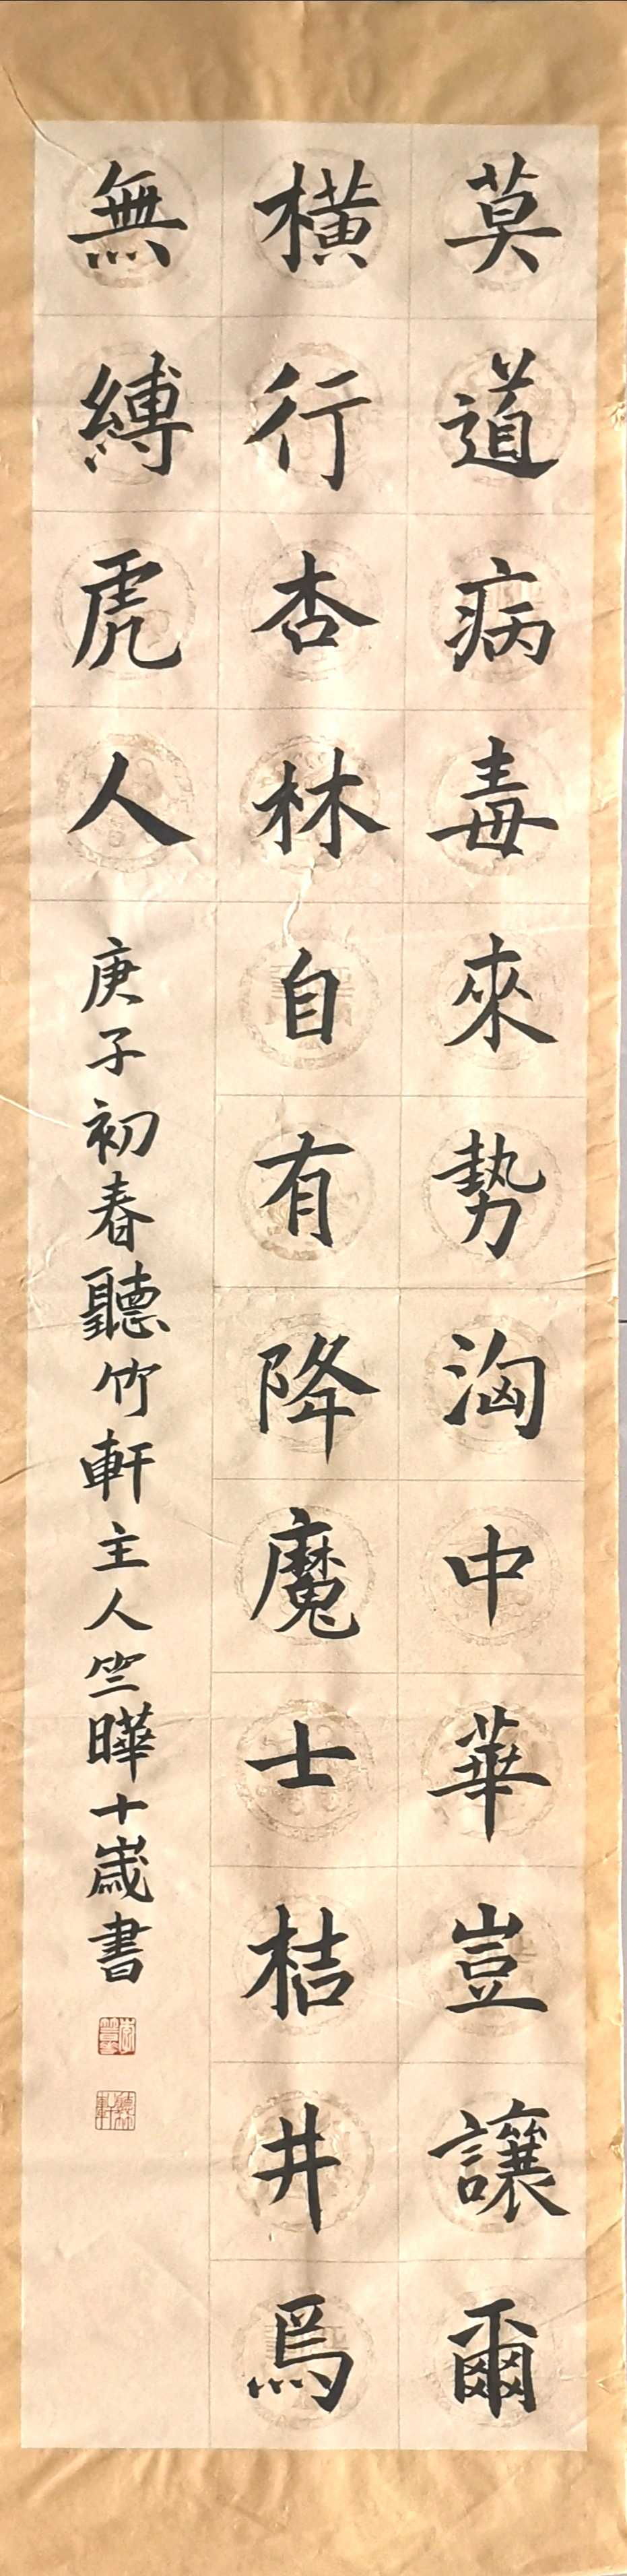 莫道病毒來勢洶中華豈讓爾
橫行杏林自有降魔士桔井焉
無縛虎人
庚子初春聽竹軒主人竺曄十歲書